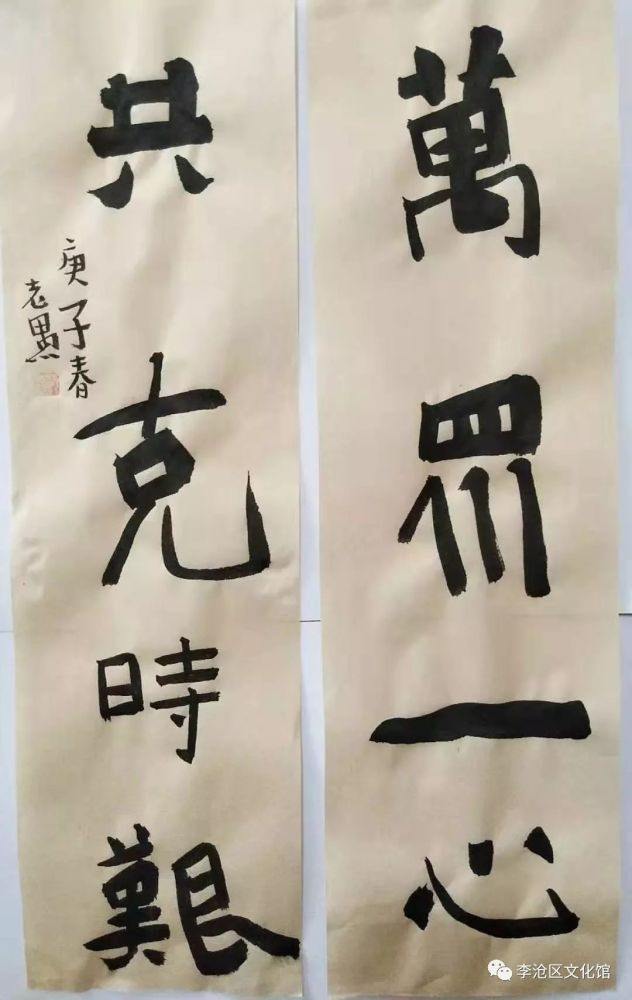 萬眾一心
共克時艱
庚子春
老愚
李沧区文化馆